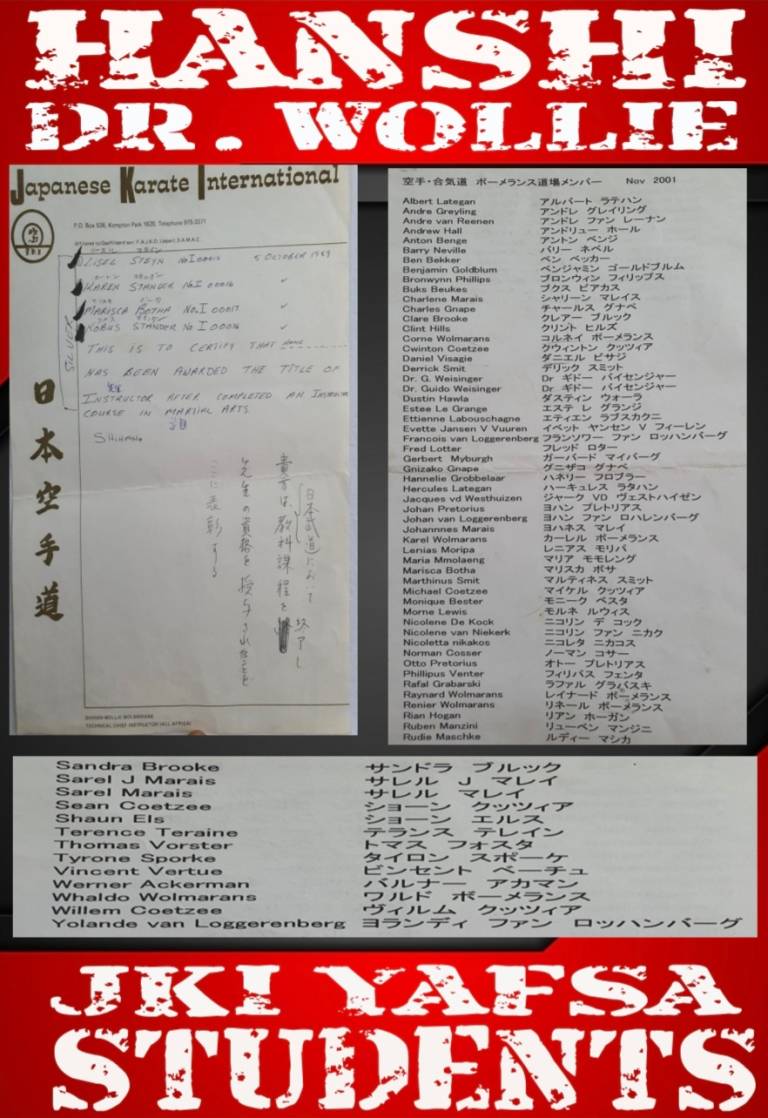 HANSHI
DR. WOLLIE
Japanese Karate International
P.O. Box 526, Kempton Park 1620, Telephone 975-3371
LISEL STEYN No I 00015 5 OCTOBER 1989
KAREN STANDER No. I 00016
MARISCA BOTHA No. I 00017
KOBUS STANDER No I 00018
THIS IS TO CERTIFY THAT
HAS BEEN AWARDED THE TITLE OF
INSTRUCTOR AFTER COMPLETED AN
COURSE IN MARTIAL ARTS
SHIHAN
日本空手道
貴方は教科課程を
日本武道において
終了し
先生の資格を授与された
ここに表彰する
SHIHAN WOLLIE WOLMARANS
TECHNICAL CHIEF INSTRUCTOR (ALL AFRICA)
空手・合気道 ボーメランス道場メンバー Nov 2001
Albert Lategan アルバート ラテハン
Andre Greyling アンドレ グレイリング
Andre van Reenen アンドレ ファン レーナン
Andrew Hall アンドリュー ホール
Anton Benge アントン ベンジ
Barry Neville バリー ネベル
Ben Bekker ベン ベッカー
Benjamin Goldblum ベンジャミン ゴールドブルム
Bronwynn Phillips ブロンウィン フィリップス
Buks Beukes ブクス ビアカス
Charlene Marais シャリーン マレイス
Charles Gnape チャールス グナペ
Clare Brooke クレアー ブルック
Clint Hills クリント ヒルズ
Corne Wolmarans コルネイ ボーメランス
Cwinton Coetzee クウィントン クッツィア
Daniel Visagie ダニエル ビサジ
Derrick Smit デリック スミット
Dr. G. Weisinger Dr ギドー バイセンジャー
Dr. Guido Weisinger Dr. ギドー バイセンジャー
Dustin Hawla ダスティン ウォーラ
Estee Le Grange エステ レ グランジ
Ettienne Labouschagne エティエン ラブスカクニ
Evette Jansen V Vuuren イベット ヤンセン V フィーレン
Francois van Loggerenberg フランソワー ファン ロッハンバーグ
Fred Lotter フレッド ロター
Gerbert Myburgh ガーバード マイバーグ
Gnizako Gnape グニザコ グナペ
Hannelie Grobbelaar ハネリー フロブラー
Hercules Lategan ハーキュレス ラタハン
Jacques vd Westhuizen ジャーク VD ヴェストハイゼン
Johan Pretorius ヨハン プレトリアス
Johan van Loggerenberg ヨハン ファン ロハレンバーグ
Johannnes Marais ヨハネス マレイ
Karel Wolmarans カーレル ボーメランス
Lenias Moripa レニアス モリパ
Maria Mmolaeng マリア モモレング
Marisca Botha マリスカ ボサ
Marthinus Smit マルティネス スミット
Michael Coetzee マイケル クッツィア
Monique Bester モニーク ベスタ
Morne Lewis モルネ ルウィス
Nicolene De Kock ニコリン デ コック
Nicolene van Niekerk ニコリン ファン ニカク
Nicoletta nikakos ニコレタ ニカコス
Norman Cosser ノーマン コサー
Otto Pretorius オトー プレトリアス
Phillipus Venter フィリパス フェンタ
Rafal Grabarski ラファル グラバスキ
Raynard Wolmarans レイナード ボーメランス
Renier Wolmarans リネール ボーメランス
Rian Hogan リアン ホーガン
Ruben Manzini リューベン マンジニ
Rudie Maschke ルディー マシカ
Sandra Brooke サンドラ ブルック
Sarel J Marais サレル J マレイ
Sarel Marais サレル マレイ
Sean Coetzee ショーン クッツィア
Shaun Els ショーン エルス
Terence Teraine テランス テレイン
Thomas Vorster トマス フォスタ
Tyrone Sporke タイロン スポーケ
Vincent Vertue ビンセント ベーチュ
Werner Ackerman バルナー アカマン
Whaldo Wolmarans ワルド ボーメランス
Willem Coetzee ヴィルム クッツィア
Yolande van Loggerenberg ヨランディ ファン ロッハンバーグ
JKI YAFSA
STUDENTS